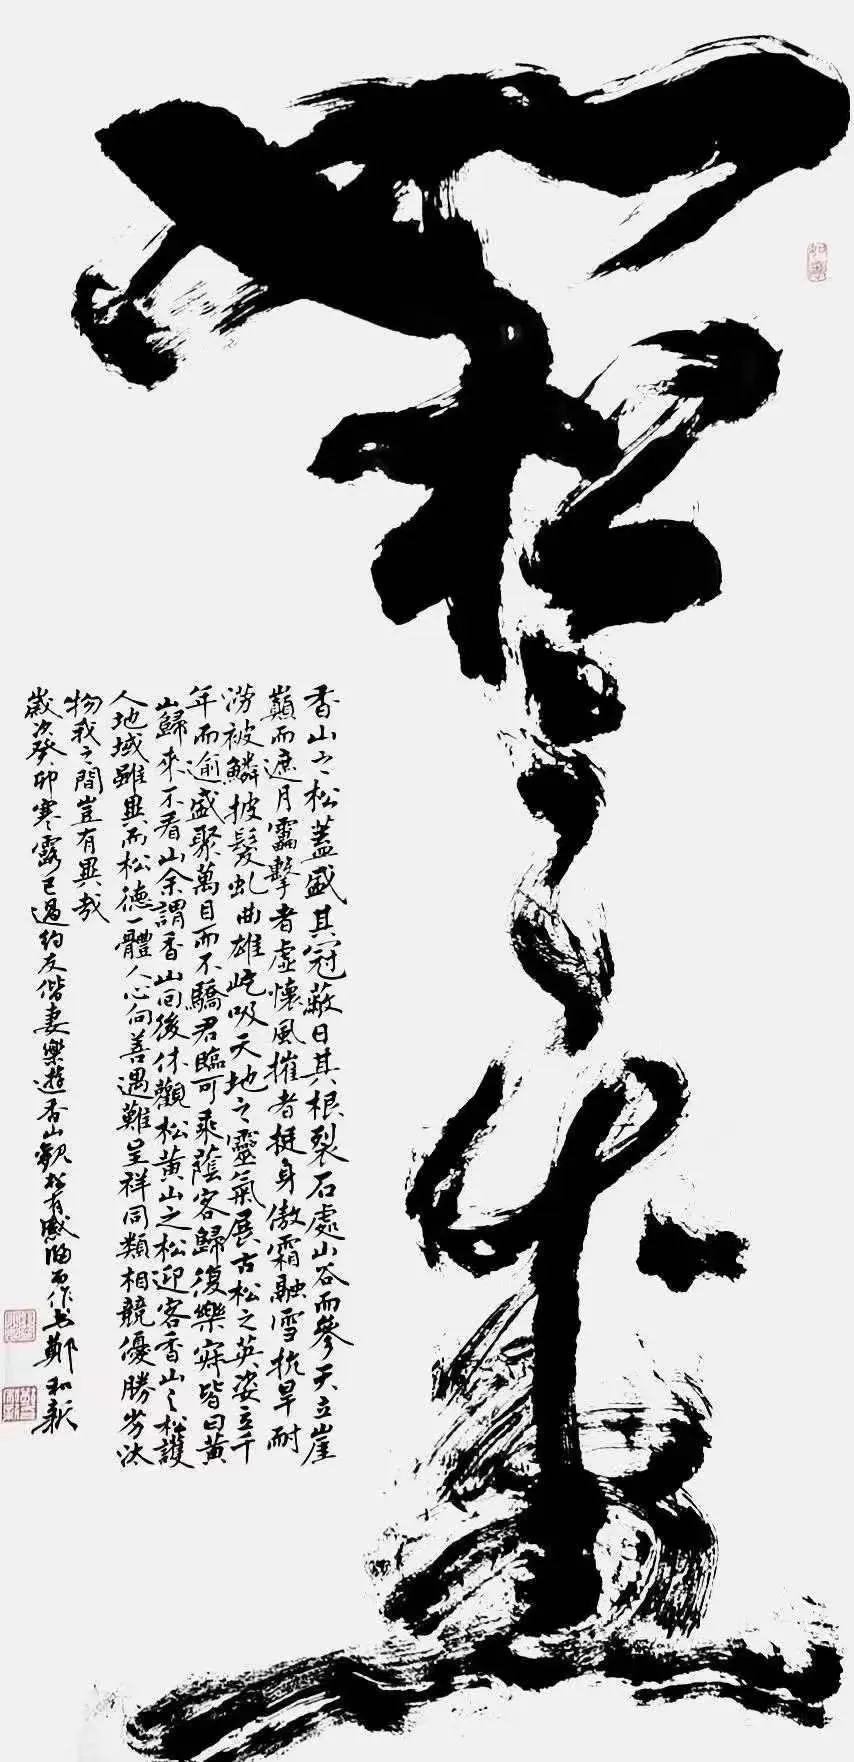 松
香山之松蓋盛其冠蔽日其根裂石處山谷而參天立崖
巔而遮月靁擊者虛懷風摧者挺身傲霜融雪抗旱耐
澇被鱗披髮虬曲雄屹吸天地之靈氣展古松之英姿立千
年而逾盛聚萬目而不驕君臨可乘蔭客歸復樂寐皆曰黃
山歸來不看山余謂香山回後休觀松黃山之松迎客香山之松護
人地域雖異而松德一體人心向善遇難呈祥同類相競優勝劣汰
物我之間豈有異哉
歲次癸卯寒露已過約友偕妻樂遊香山觀松有感歸而作書鄭和新